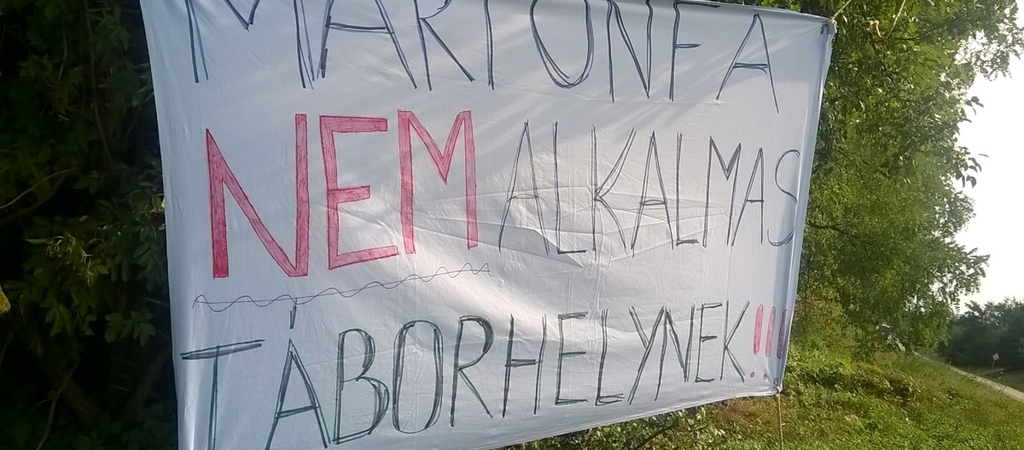 MARTONFA
NEM ALKALMAS
TÁBORHELYNEK!!!